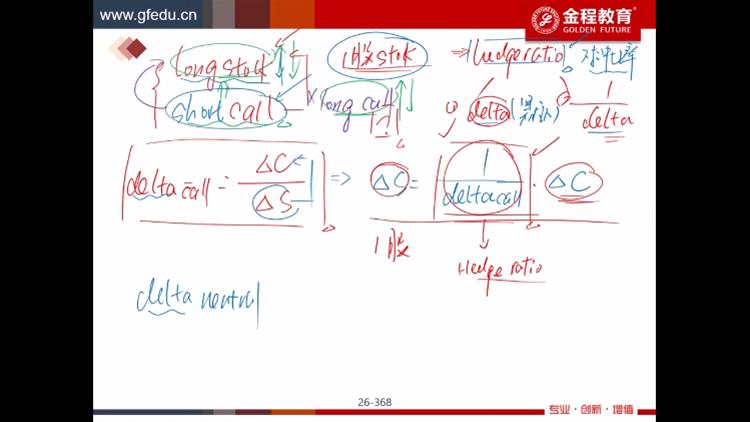 www.gfedu.cn
金程教育
GOLDEN FUTURE
long stock
short call
1股 stock
× long call
⇒ Hudge ratio 求倒数
① delta (默认)
② 1/delta
delta call = ΔC/ΔS
⇒ ΔC = 1/delta call · ΔC
1股
Hedge ratio
delta neutral
26-368
专业·创新·增值